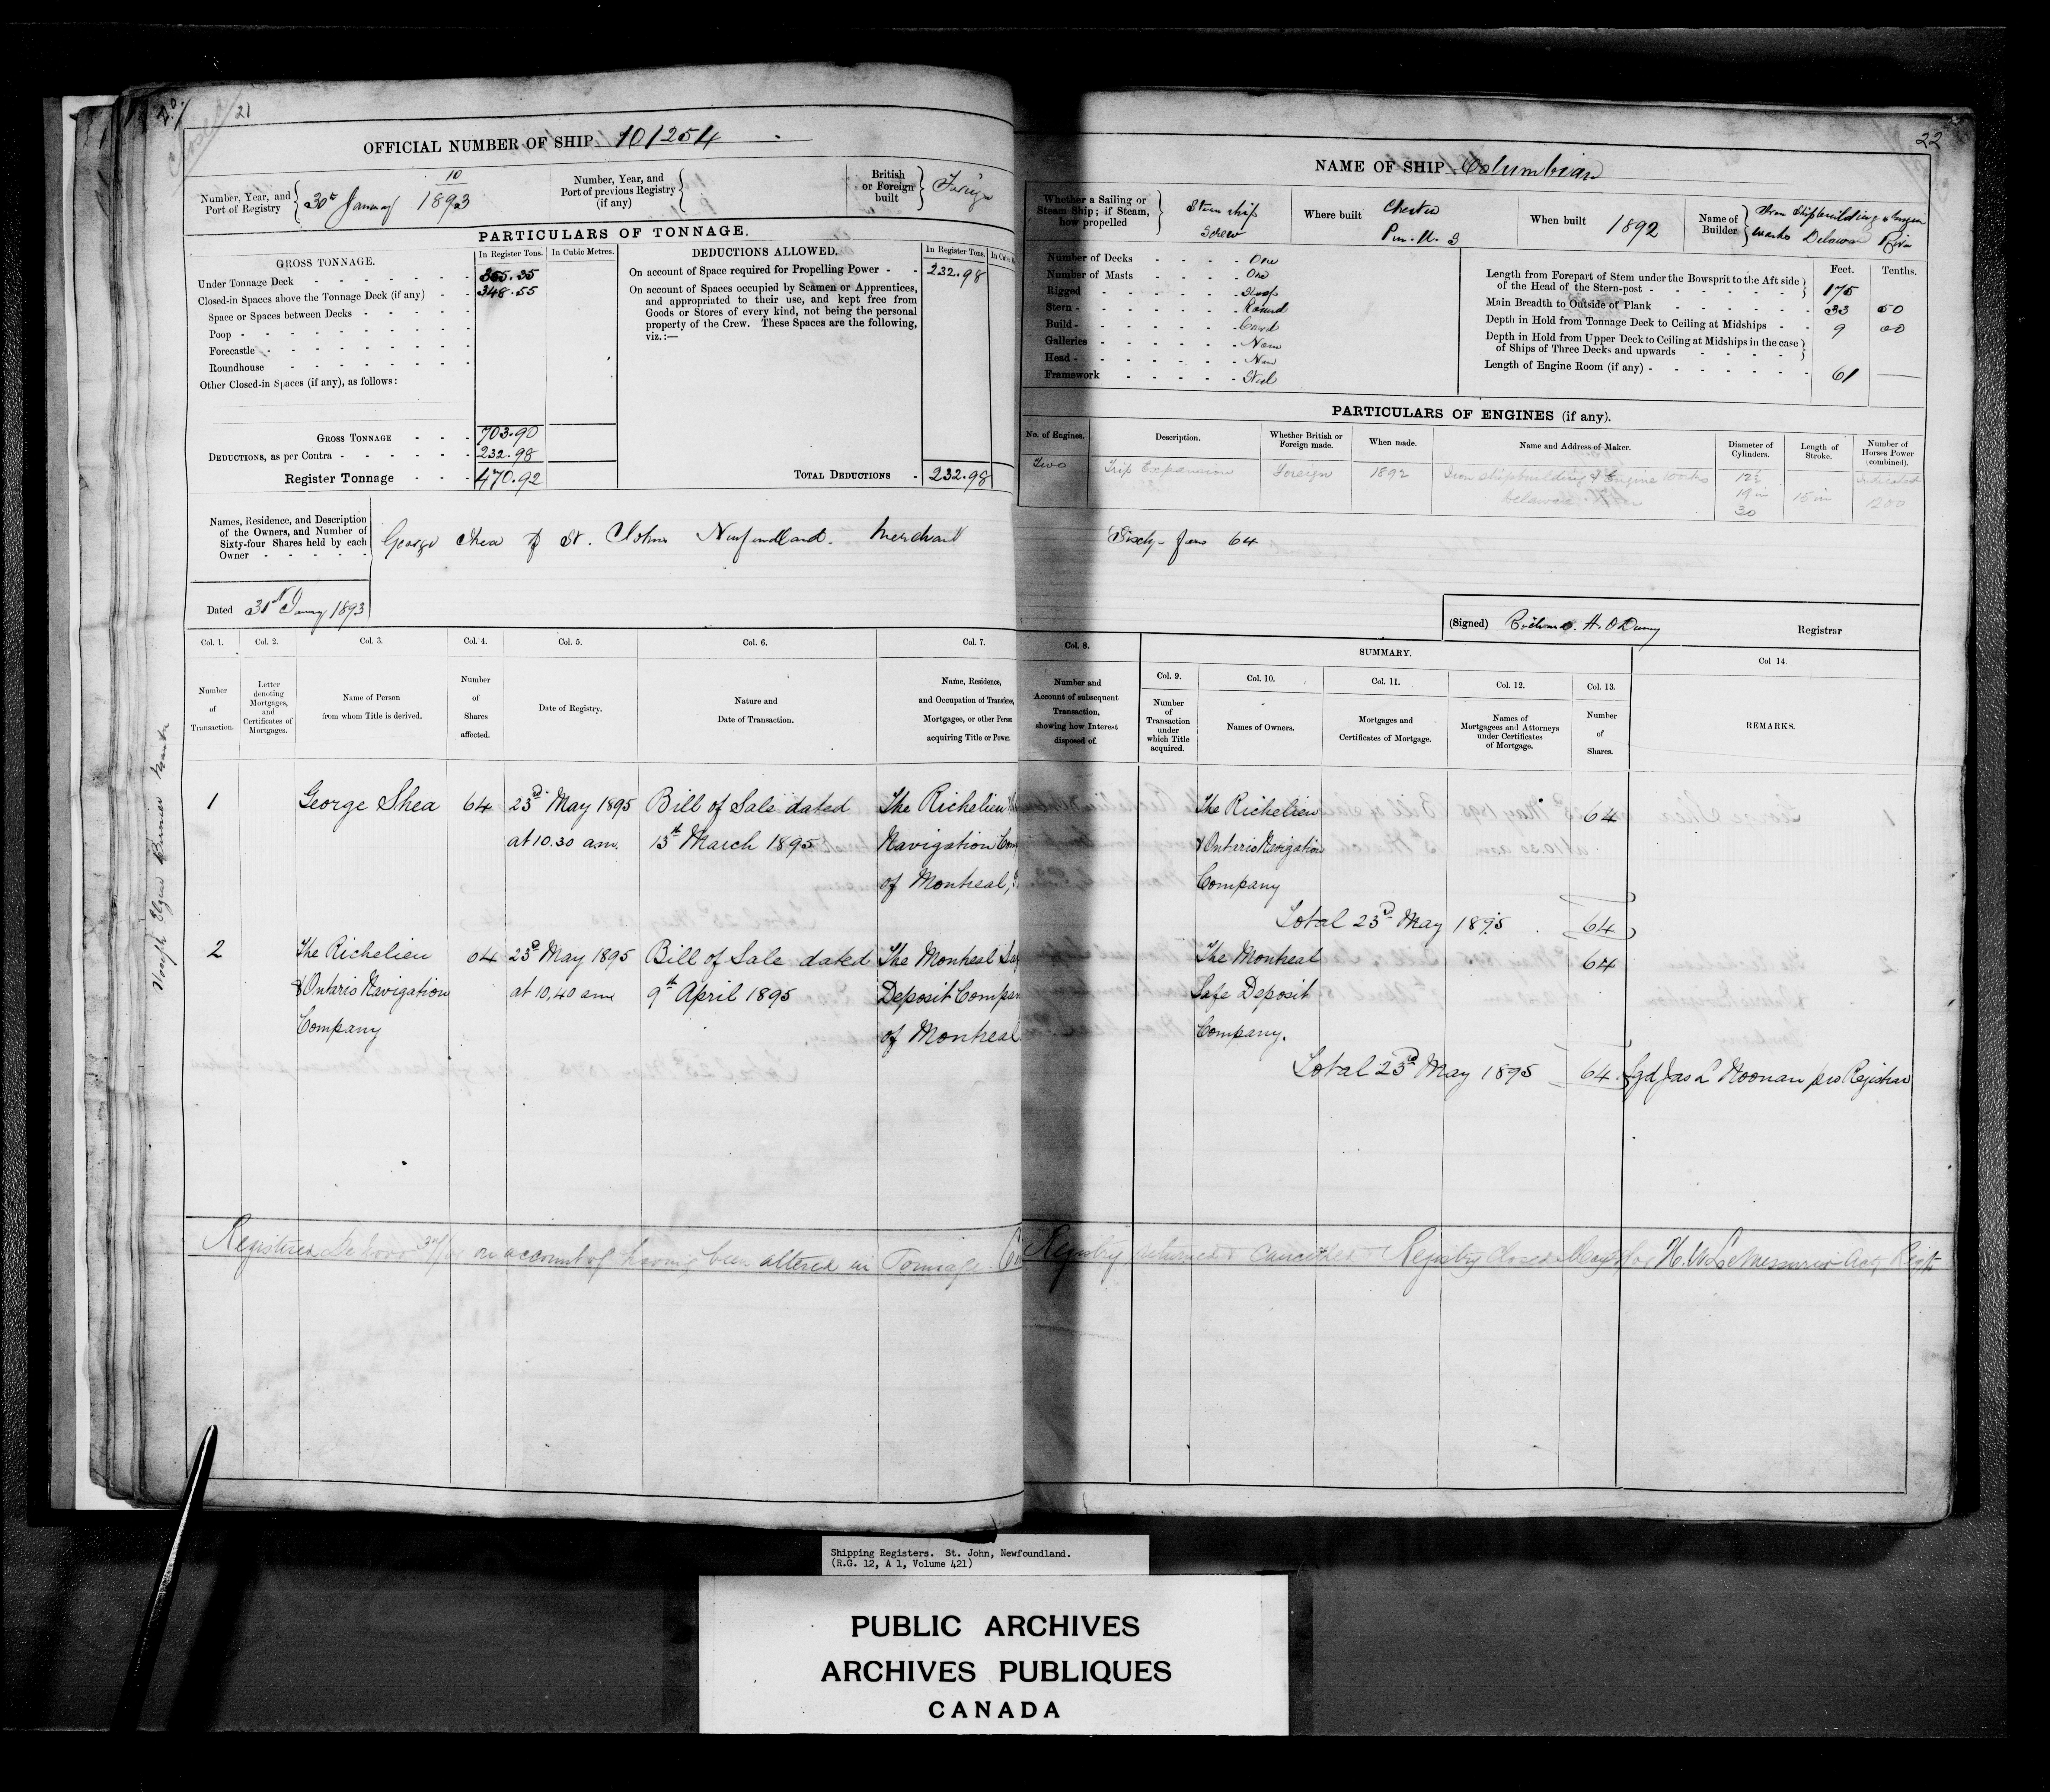 21
OFFICIAL NUMBER OF SHIP 101254
Number, Year, and Port of Registry 10 30th January 1893
Number, Year, and Port of previous Registry (if any)
British or Foreign built Foreign
PARTICULARS OF TONNAGE.
GROSS TONNAGE.
In Register Tons.
In Cubic Metres.
Under Tonnage Deck 355.35
Closed-in Spaces above the Tonnage Deck (if any) 348.55
Space or Spaces between Decks
Poop
Forecastle
Roundhouse
Other Closed-in Spaces (if any), as follows:
GROSS TONNAGE 703.90
DEDUCTIONS, as per Contra 232.98
Register Tonnage 470.92
DEDUCTIONS ALLOWED.
In Register Tons.
On account of Space required for Propelling Power 232.98
On account of Spaces occupied by Seamen or Apprentices,
and appropriated to their use, and kept free from
Goods or Stores of every kind, not being the personal
property of the Crew. These Spaces are the following,
viz.:—
TOTAL DEDUCTIONS 232.98
Names, Residence, and Description
of the Owners, and Number of
Sixty-four Shares held by each
Owner
George Shea of St. Johns Newfoundland. Merchant
Dated 31st January 1893
Col. 1. Col. 2. Col. 3. Col. 4. Col. 5. Col. 6. Col. 7.
Number of Transaction.
Letter denoting Mortgages, and Certificates of Mortgages.
Name of Person from whom Title is derived.
Number of Shares affected.
Date of Registry.
Nature and Date of Transaction.
Name, Residence, and Occupation of Transferee, Mortgagee, or other Person acquiring Title or Power.
1 George Shea 64 23rd May 1895 Bill of Sale dated The Richelieu
at 10.30 am. 13th March 1895 Navigation
of Montreal,
2 The Richelieu 64 23rd May 1895 Bill of Sale dated The Montreal
& Ontario Navigation at 10,40 am 9th April 1895 Deposit
Company of Montreal
Registered De Novo on account of having been altered in Tonnage.
22
NAME OF SHIP Columbian
Whether a Sailing or Steam Ship; if Steam, how propelled
Steam ship
Screw
Where built Chester
When built 1892
Name of Builder Iron Shipbuilding & Engine
works Delaware River
Number of Decks One
Number of Masts One
Rigged Sloop
Stern Round
Build
Galleries None
Head None
Framework Steel
Feet. Tenths.
Length from Forepart of Stem under the Bowsprit to the Aft side
of the Head of the Stern-post 175
Main Breadth to Outside of Plank 33 50
Depth in Hold from Tonnage Deck to Ceiling at Midships 9 00
Depth in Hold from Upper Deck to Ceiling at Midships in the case
of Ships of Three Decks and upwards
Length of Engine Room (if any) 61
PARTICULARS OF ENGINES (if any).
No. of Engines.
Description.
Whether British or Foreign made.
When made.
Name and Address of Maker.
Diameter of Cylinders.
Length of Stroke.
Number of Horses Power (combined).
Two Trip Expansion Foreign 1892 Iron Shipbuilding & Engine Works 12½ Indicated
Delaware 19 in 18 in 1200
30
Sixty-four 64
(Signed) Registrar
Col. 8.
Number and Account of subsequent Transaction, showing how Interest disposed of.
SUMMARY.
Col. 9. Col. 10. Col. 11. Col. 12. Col. 13. Col 14.
Number of Transaction under which Title acquired.
Names of Owners.
Mortgages and Certificates of Mortgage.
Names of Mortgagees and Attorneys under Certificates of Mortgage.
Number of Shares.
REMARKS.
The Richelieu 64
& Ontario Navigation
Company
Total 23rd May 1895 64
The Montreal 64
Safe Deposit
Company.
Total 23rd May 1895 64 Sgd Jas L Noonan pro Registrar
Registry returned & Cancelled & Registry Closed H. W. LeMessurier Actg Regtr
Shipping Registers. St. John, Newfoundland.
(R.G. 12, A 1, Volume 421)
PUBLIC ARCHIVES
ARCHIVES PUBLIQUES
CANADA